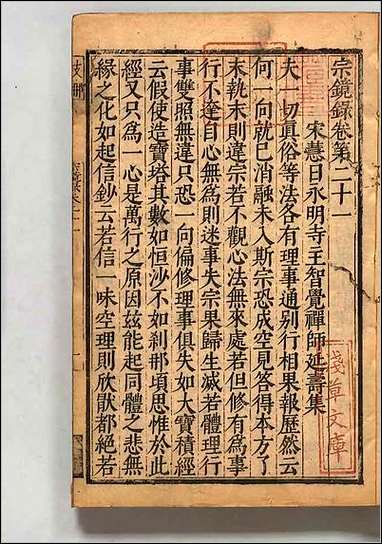 宗鏡錄卷第二十一
宋慧日永明寺主智覺禪師延壽集
夫一切眞俗等法各有理事通別行相果報歷然云
何一向就已消融未入斯宗恐成空見答得本方了
末執末則違宗若不觀心法無來處若但修有爲事
行不達自心無爲則迷事失宗果歸生滅若體理行
事雙照無違只恐一向偏修理事俱失如大寶積經
云假使造寶塔其數如恒沙不如刹那頃思惟於此
經又只爲一心是萬行之原因玆能起同體之悲無
緣之化如起信鈔云若信一味空理則欣猒都絕若
淺草文庫